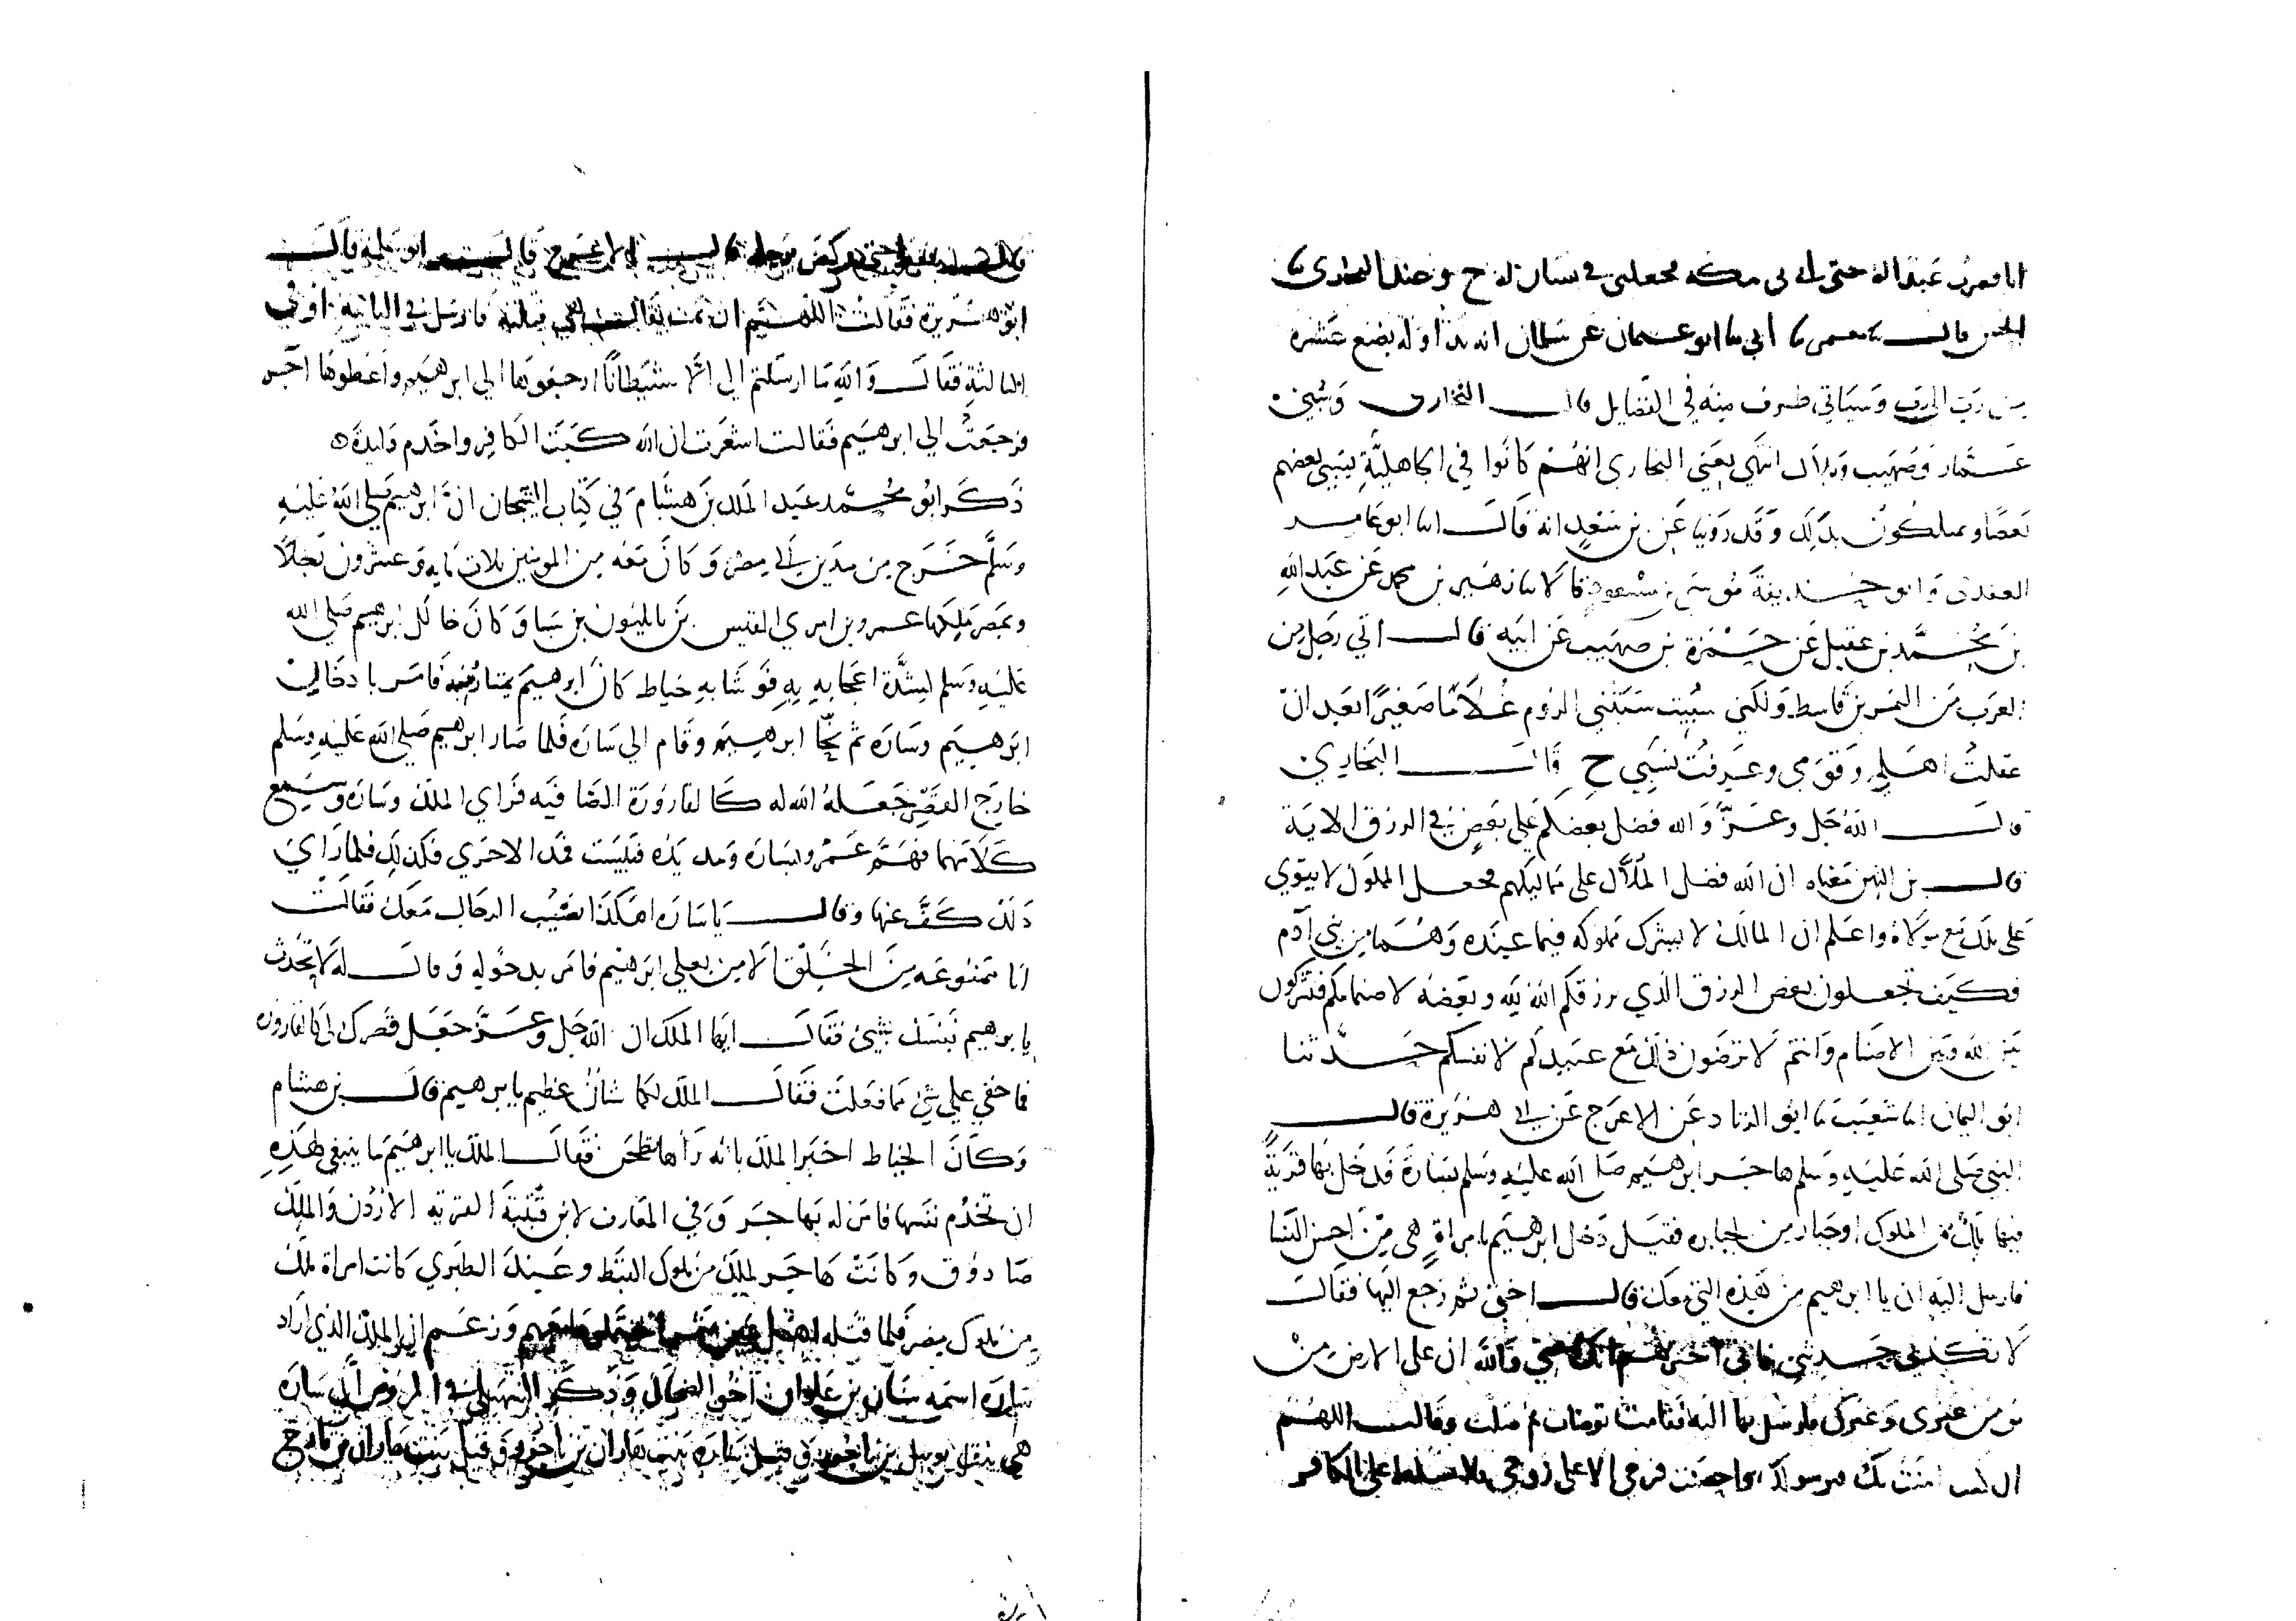 انا فمررت عبد الله حتى اتى بي مكة فجعلني في بستان له ح وحدثنا البخاري ثنا
الحسن قال ثنا معمر ثنا ابي ثنا ابو عثمان عن سلمان انه تداوله بضع عشره
من رب الى رب وسياتي طرف منه في الفضايل قال البخاري وسبي
عمار وصهيب وبلال انتهى يعني البخاري انهم كانوا في الجاهلية يسبي بعضهم
بعضا ويملكون بذلك وقد روينا عن بن سعد انه قال انا ابو عامر
العقدي وابو حذيفة موسى بن مسعود قالا ثنا زهير بن محمد عن عبد الله
بن محمد بن عقيل عن حمزة بن صهيب عن ابيه قال اني رجل من
العرب من النمر بن قاسط ولكني سبيت سبتني الروم غلاما صغيرا بعد ان
عقلت اهلي وقومي وعرفت نسبي ح قال البخاري
قال الله جل وعز والله فضل بعضكم على بعض في الرزق الاية
قال بن التين معناه ان الله فضل الملاك على مماليكهم فجعل المملوك لا يقوي
على ملك مع مولاه واعلم ان المالك لا يشرك مملوكه فيما عنده وهما من بني آدم
فكيف تجعلون بعض الرزق الذي يرزقكم الله لله وبعضه لاصنامكم فتشركون
بين الله وبين الاصنام وانتم لا ترضون ذلك مع عبيدكم لانفسكم حدثنا
ابو اليمان انا شعيب ثنا ابو الزناد عن الاعرج عن ابي هريرة قال
النبي صلى الله عليه وسلم هاجر ابرهيم صلى الله عليه وسلم بسارة فدخل بها قرية
فيها ملك من الملوك او جبار من الجبابره فقيل دخل ابرهيم بامراة هي من احسن النسا
فارسل اليه ان يا ابرهيم من هذه التي معك قال اختي ثم رجع اليها فقال
لا تكذبي حديثي فاني اخبرتهم انك اختي والله ان على الارض من
مومن غيري وغيرك فارسل بها اليه فقامت توضات ثم صلت وقالت اللهم
ان كنت امنت بك وبرسولك واحصنت فرجي الا على زوجي فلا تسلط علي الكافر
حتى ركض برجله قال الاعرج قال ابو سلمه قال
ابو هريرة فقالت اللهم ان يمت يقال هي قتلته فارسل في الثانية او في
الثالثة فقال والله ما ارسلتم الي الا شيطانا ارجعوها الي ابرهيم واعطوها آجر
فرجعت الي ابرهيم فقالت اشعرت ان الله كبت الكافر واخدم وليدة
ذكر ابو محمد عبد الملك بن هشام في كتاب التيجان ان ابرهيم صلى الله عليه
وسلم خرج من مدين الي مصر وكان معه من المومنين ثلاث مايه وعشرون رجلا
وبمصر ملكها عمرو بن امري القيس بن بابليون بن سبا وكان خال ابرهيم صلى الله
عليه وسلم لشدة اعجابه به فوشا به خياط كان ابرهيم يمتار منه فامر بادخال
ابرهيم وساره ثم نحا ابرهيم وقام الي ساره فلما صار ابرهيم صلى الله عليه وسلم
خارج القصر جعله الله له كالقارورة الصافيه فراي الملك وساره وسمع
كلامهما فهم عمرو بساره ومد يده فيبست فمد الاخري فكذلك فلما راي
ذلك كف عنها وقال يا ساره اهكذا تصيب الرجال معك فقالت
انا ممنوعه من الخلق الا من بعلي ابرهيم فامر بدخوله وقال له لا تحدث
يا برهيم نفسك بشي فقال ايها الملك ان الله جل وعز جعل قصرك لي كالقاروره
فما خفي علي شي مما فعلت فقال الملك لكما شان عظيم يا برهيم قال بن هشام
وكان الخياط اخبر الملك بانه رآها تطحن فقال الملك يا ابرهيم ما ينبغي لهذه
ان تخدم نفسها فامر له بهاجر وفي المعارف لابن قتيبة القرية الاردن والملك
صادوق وكانت هاجر لملك من ملوك القبط وعند الطبري كانت امراة ملك
من ملوك مصر فلما قتله اهل عين شمس احتملوها معهم وزعم ان الملك الذي اراد
ساره اسمه سنان بن علوان اخو الضحاك وذكر السهيلي في الروض ان ساره
هي بنت توبيل بن ناحور وقيل ساره بنت هاران بن ناحور وقيل بنت هاران بن تارح